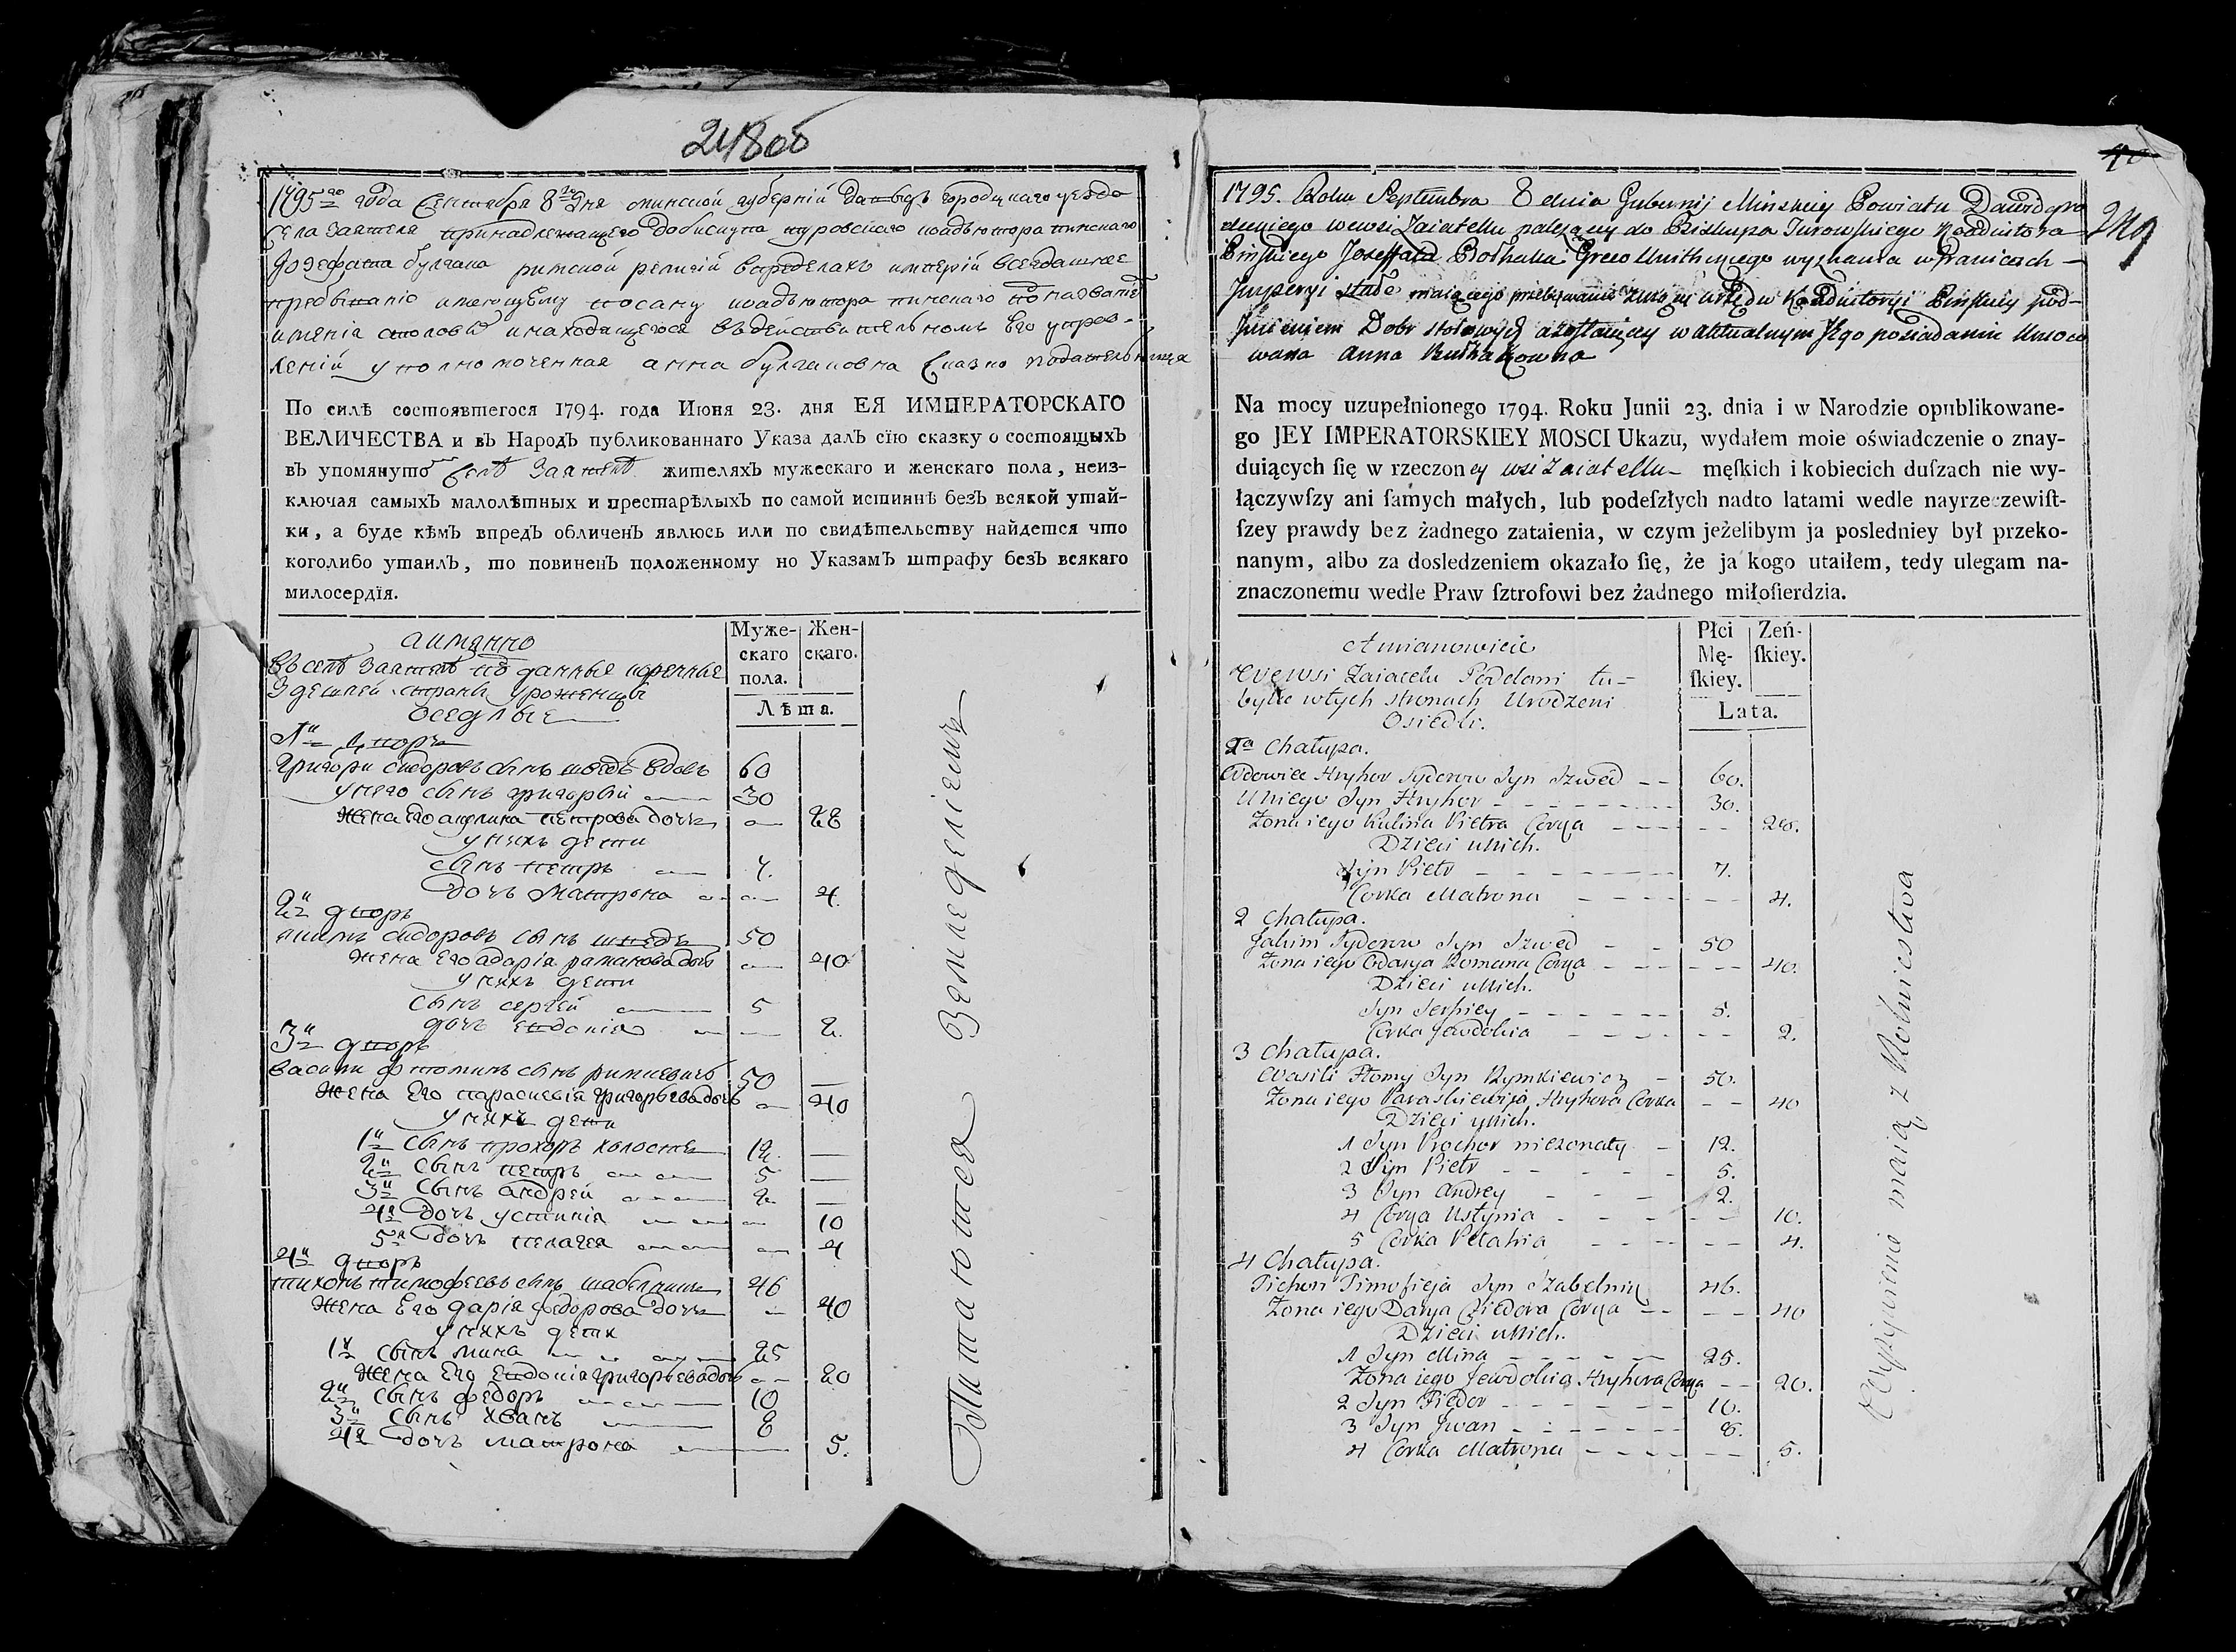 24806
1795го года Сентября 8го Дня минской губерній Давыдъ городцкаго уезда
Села Заятеля принадлежащего До бискупа туровского коадъютора пинскаго
Иозефата булгака римской религій впределахъ империй всегдашнее
пребывание имеющему посану коадьютора пинскаго
имения столовы и находящегося въ действительномъ Его управ-
лений уполномоченная анна булгаковна Сказко подательница
По силѣ состоявшегося 1794. года Июня 23. дня ЕЯ ИМПЕРАТОРСКАГО
ВЕЛИЧЕСТВА и въ НародЪ публикованнаго Указа далЪ сїю сказку о состоящыхЪ
въ упомянуто Селѣ Заятелѣ жителяхЪ мужескаго и женскаго пола, неиз-
ключая самыхЪ малолѣтных и престарѣлыхЪ по самой истиннѣ безЪ всякой утай-
ки, а буде кѣмЪ впредЪ обличенЪ явлюсь или по свидѣтельству найдется что
коголибо утаилЪ, то повиненЪ положенному по УказамЪ штрафу безЪ всякаго
милосердїя.
Муже-
скаго
пола.
Жен-
скаго.
Лѣта.
а имянно
Въ селѣ Заятелѣ подданные коренные
Здешней страны уроженцы
оседлые
1й дворъ
Григори сидоровъ сынъ шведъ вдовъ 60
у него сынъ григорий 30
жена Его акулина петрова дочь 28
у нихъ дети
сынъ петръ 7.
дочь матрона 4.
2й дворъ
якимъ сидоровъ сынъ шведъ 50
жена Его адарія раманова дочь 40
у нихъ дети
сынъ сергей 5
дочь евдокия 2.
3й дворъ
василий фтоминъ сынъ римкевичъ 50
жена Его параскевія григорьева дочь 40
у нихъ дети
1й сынъ прохоръ холостъ 12.
2й сынъ петръ 5
3й сынъ андрей 2
4я дочь устинія 10
5я дочь пелагея 4
4й дворъ
тихонъ тимофеевъ сынъ шабелникъ 46
жена Его дарія федорова дочь 40
у нихъ дети
1й сынъ мина 25
жена Его Евдокія григорьева дочь 20
2й сынъ федоръ 10
3й сынъ иванъ 8
4я дочь матрона 5.
Питаются Земледелиемъ
1795. Roku Septembra 8 dnia Gubernij Minskiey Powiatu Dawidgro
dzkiego wewsi Zaiatellu należący do Biskupa Turowskiego Koadiutora
Pińskiego Jozeffata Bółhaka Greco Unithskiego wyznania w Granicach
Imperyi stałe maiącego mieszkanie
Dobr stołowych a zostaiącey w aktualnym Jego posiadaniu Umoco
wana Anna Bułhakowna
Na mocy uzupełnionego 1794. Roku Junii 23. dnia i w Narodzie opublikowane-
go JEY IMPERATORSKIEY MOSCI Ukazu, wydałem moie oświadczenie o znay-
duiących ſię w rzeczoney wsi Zaiatellu męſkich i kobiecich duſzach nie wy-
łączywſzy ani ſamych małych, lub podeſzłych nadto latami wedle nayrzeczewiſt-
ſzey prawdy bez żadnego zataienia, w czym jeżelibym ja posledniey był przeko-
nanym, albo za dosledzeniem okazało ſię, że ja kogo utaiłem, tedy ulegam na-
znaczonemu wedle Praw ſztrofowi bez żadnego miłoſierdzia.
Płci
Mę-
ſkiey.
Zeń-
ſkiey.
Lata.
A mianowicie
We wsi Zaiacelu Poddani tu-
bylce w tych stronach Urodzeni
Osiedli.
1a Chałupa.
Wdowiec Hryhor Sydorow Syn Szwed 60.
U niego Syn Hryhor 30.
Zona iego Kulina Pietra Corya 28.
Dzieci u Nich.
Syn Pietr 7.
Corka Matrona 4.
2 Chałupa.
Jakim Sydorow Syn Szwed 50
Zona iego Odarya Romana Corya 40.
Dzieci u Nich.
Syn Serhiey 5.
Corka Jewdokia 2.
3 Chałupa.
Wasili Ftomy Syn Rymkiewicz 50.
Zona iego Paraskiewija Hryhora Corka 40
Dzieci u Nich.
1 Syn Prochor niezonaty 12.
2 Syn Pietr 5.
3 Syn Andrey 2.
4 Corya Ustynia 10.
5 Corka Pełahia 4.
4 Chałupa.
Tichon Timofieja Syn Szabelnik 46.
Zona iego Darya Fiedora Corya 40
Dzieci u Nich.
1 Syn Mina 25.
Zona iego Jewdokia Hryhora Corya 20.
2 Syn Fiedor 10.
3 Syn Iwan 8.
4 Corka Matrona 5.
Wyżywienie maią z Rolnictwa